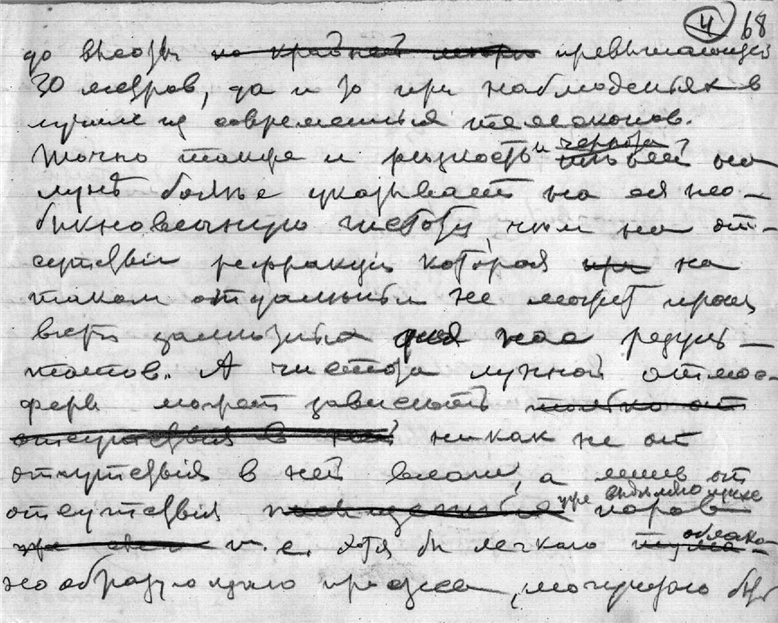 4 68
до высоты по крайней мере превышающей
30 метров, да и то при наблюденьях в
лучшие из современных телескопов.
Точно также и резкость и чернота теней на
лунѣ более указывает на ея нео-
быкновенную чистоту, чем на от-
сутствіи рефракціи которая при на
таком отдаленьи не может произ
вести замѣтных для нас резуль-
татов. А чистота лунной атмос-
феры может зависеть только от
отсутствія в ней никак не от
отсутствія в ней влаги, а лишь от
отсутствія уже видимаго нике паров
же т. е. хотя бы легкаго тума облако-
нообразующаго процесса, могущаго быть